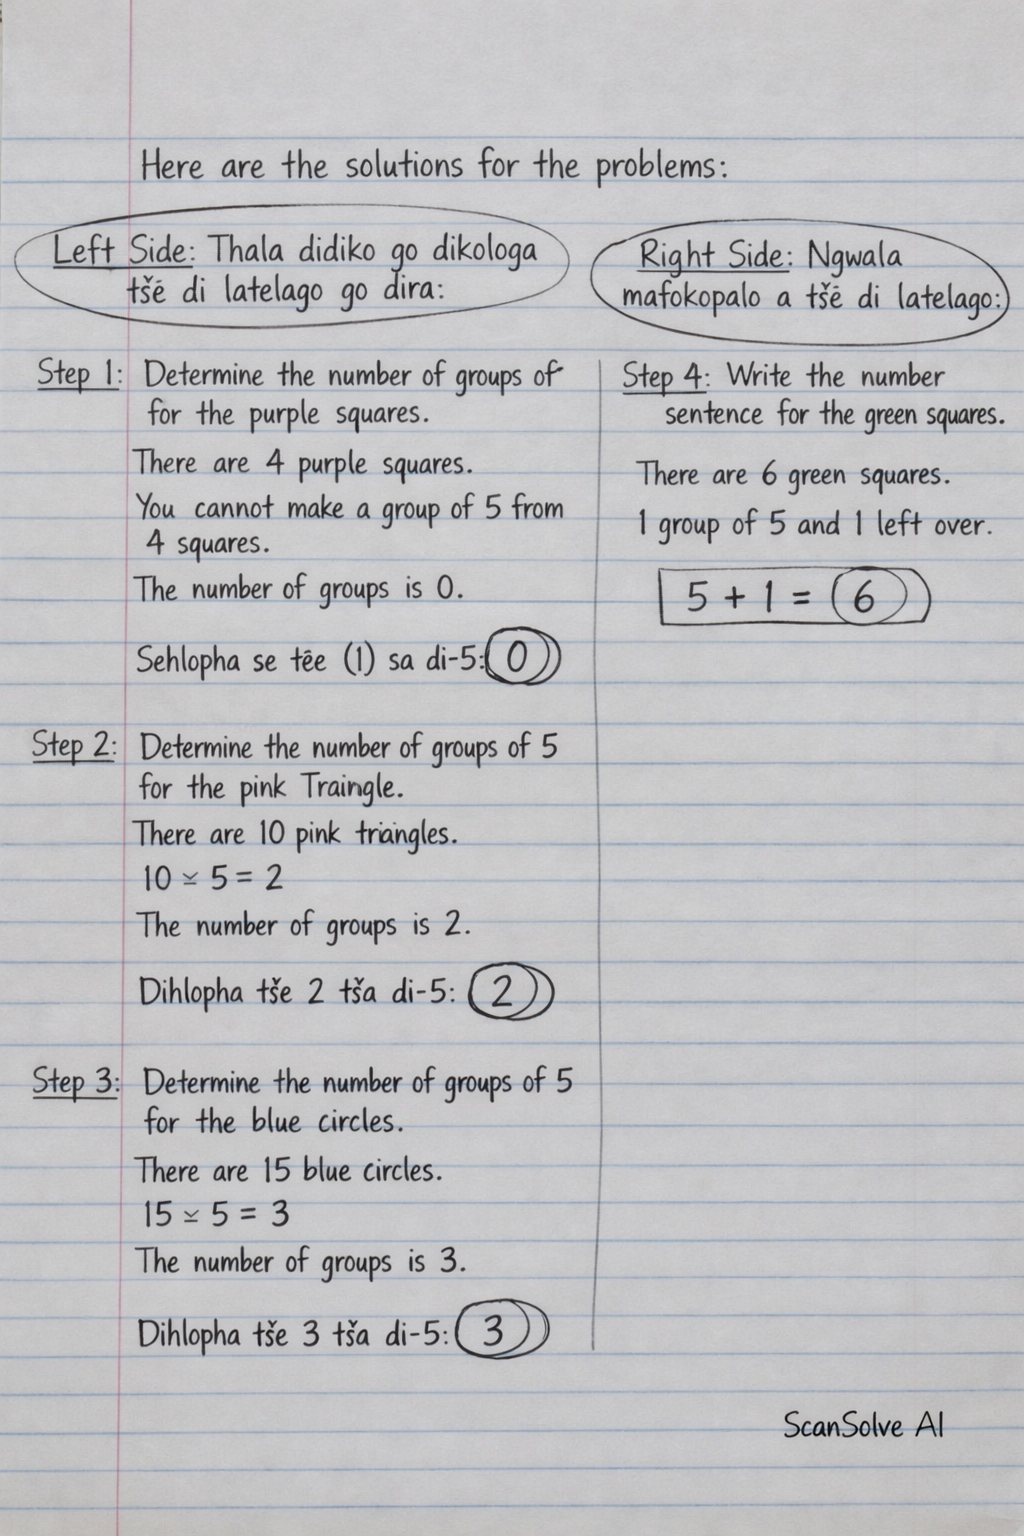 Here are the solutions for the problems:
Left Side: Thala didiko go dikologa
tšē di latelago go dira:
Step 1: Determine the number of groups of
for the purple squares.
There are 4 purple squares.
You cannot make a group of 5 from
4 squares.
The number of groups is 0.
Sehlopha se tēe (1) sa di-5: 0
Step 2: Determine the number of groups of 5
for the pink Traingle.
There are 10 pink triangles.
10 ≚ 5 = 2
The number of groups is 2.
Dihlopha tše 2 tša di-5: 2
Step 3: Determine the number of groups of 5
for the blue circles.
There are 15 blue circles.
15 ≚ 5 = 3
The number of groups is 3.
Dihlopha tše 3 tša di-5: 3
Right Side: Ngwala
mafokopalo a tšē di latelago:
Step 4: Write the number
sentence for the green squares.
There are 6 green squares.
1 group of 5 and 1 left over.
5 + 1 = 6
ScanSolve AI